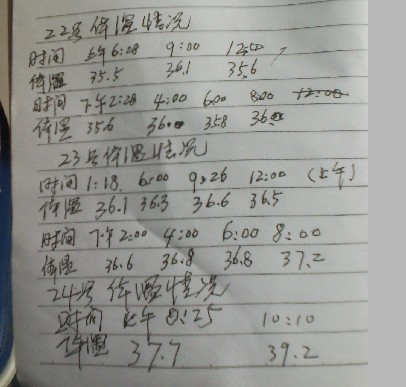 22号体温情况
时间 上午6:28 9:00 12:00
体温 35.5 36.1 35.6
时间 下午2:28 4:00 6:00 8:00 12:00
体温 35.6 36. 35.8 36.
23号体温情况
时间 1:18. 6:00 9:26 12:00 (上午)
体温 36.1 36.3 36.6 36.5
时间 下午2:00 4:00 6:00 8:00
体温 36.6 36.8 36.8 37.2
24号体温情况
时间 上午 8:25 10:10
体温 37.7 39.2